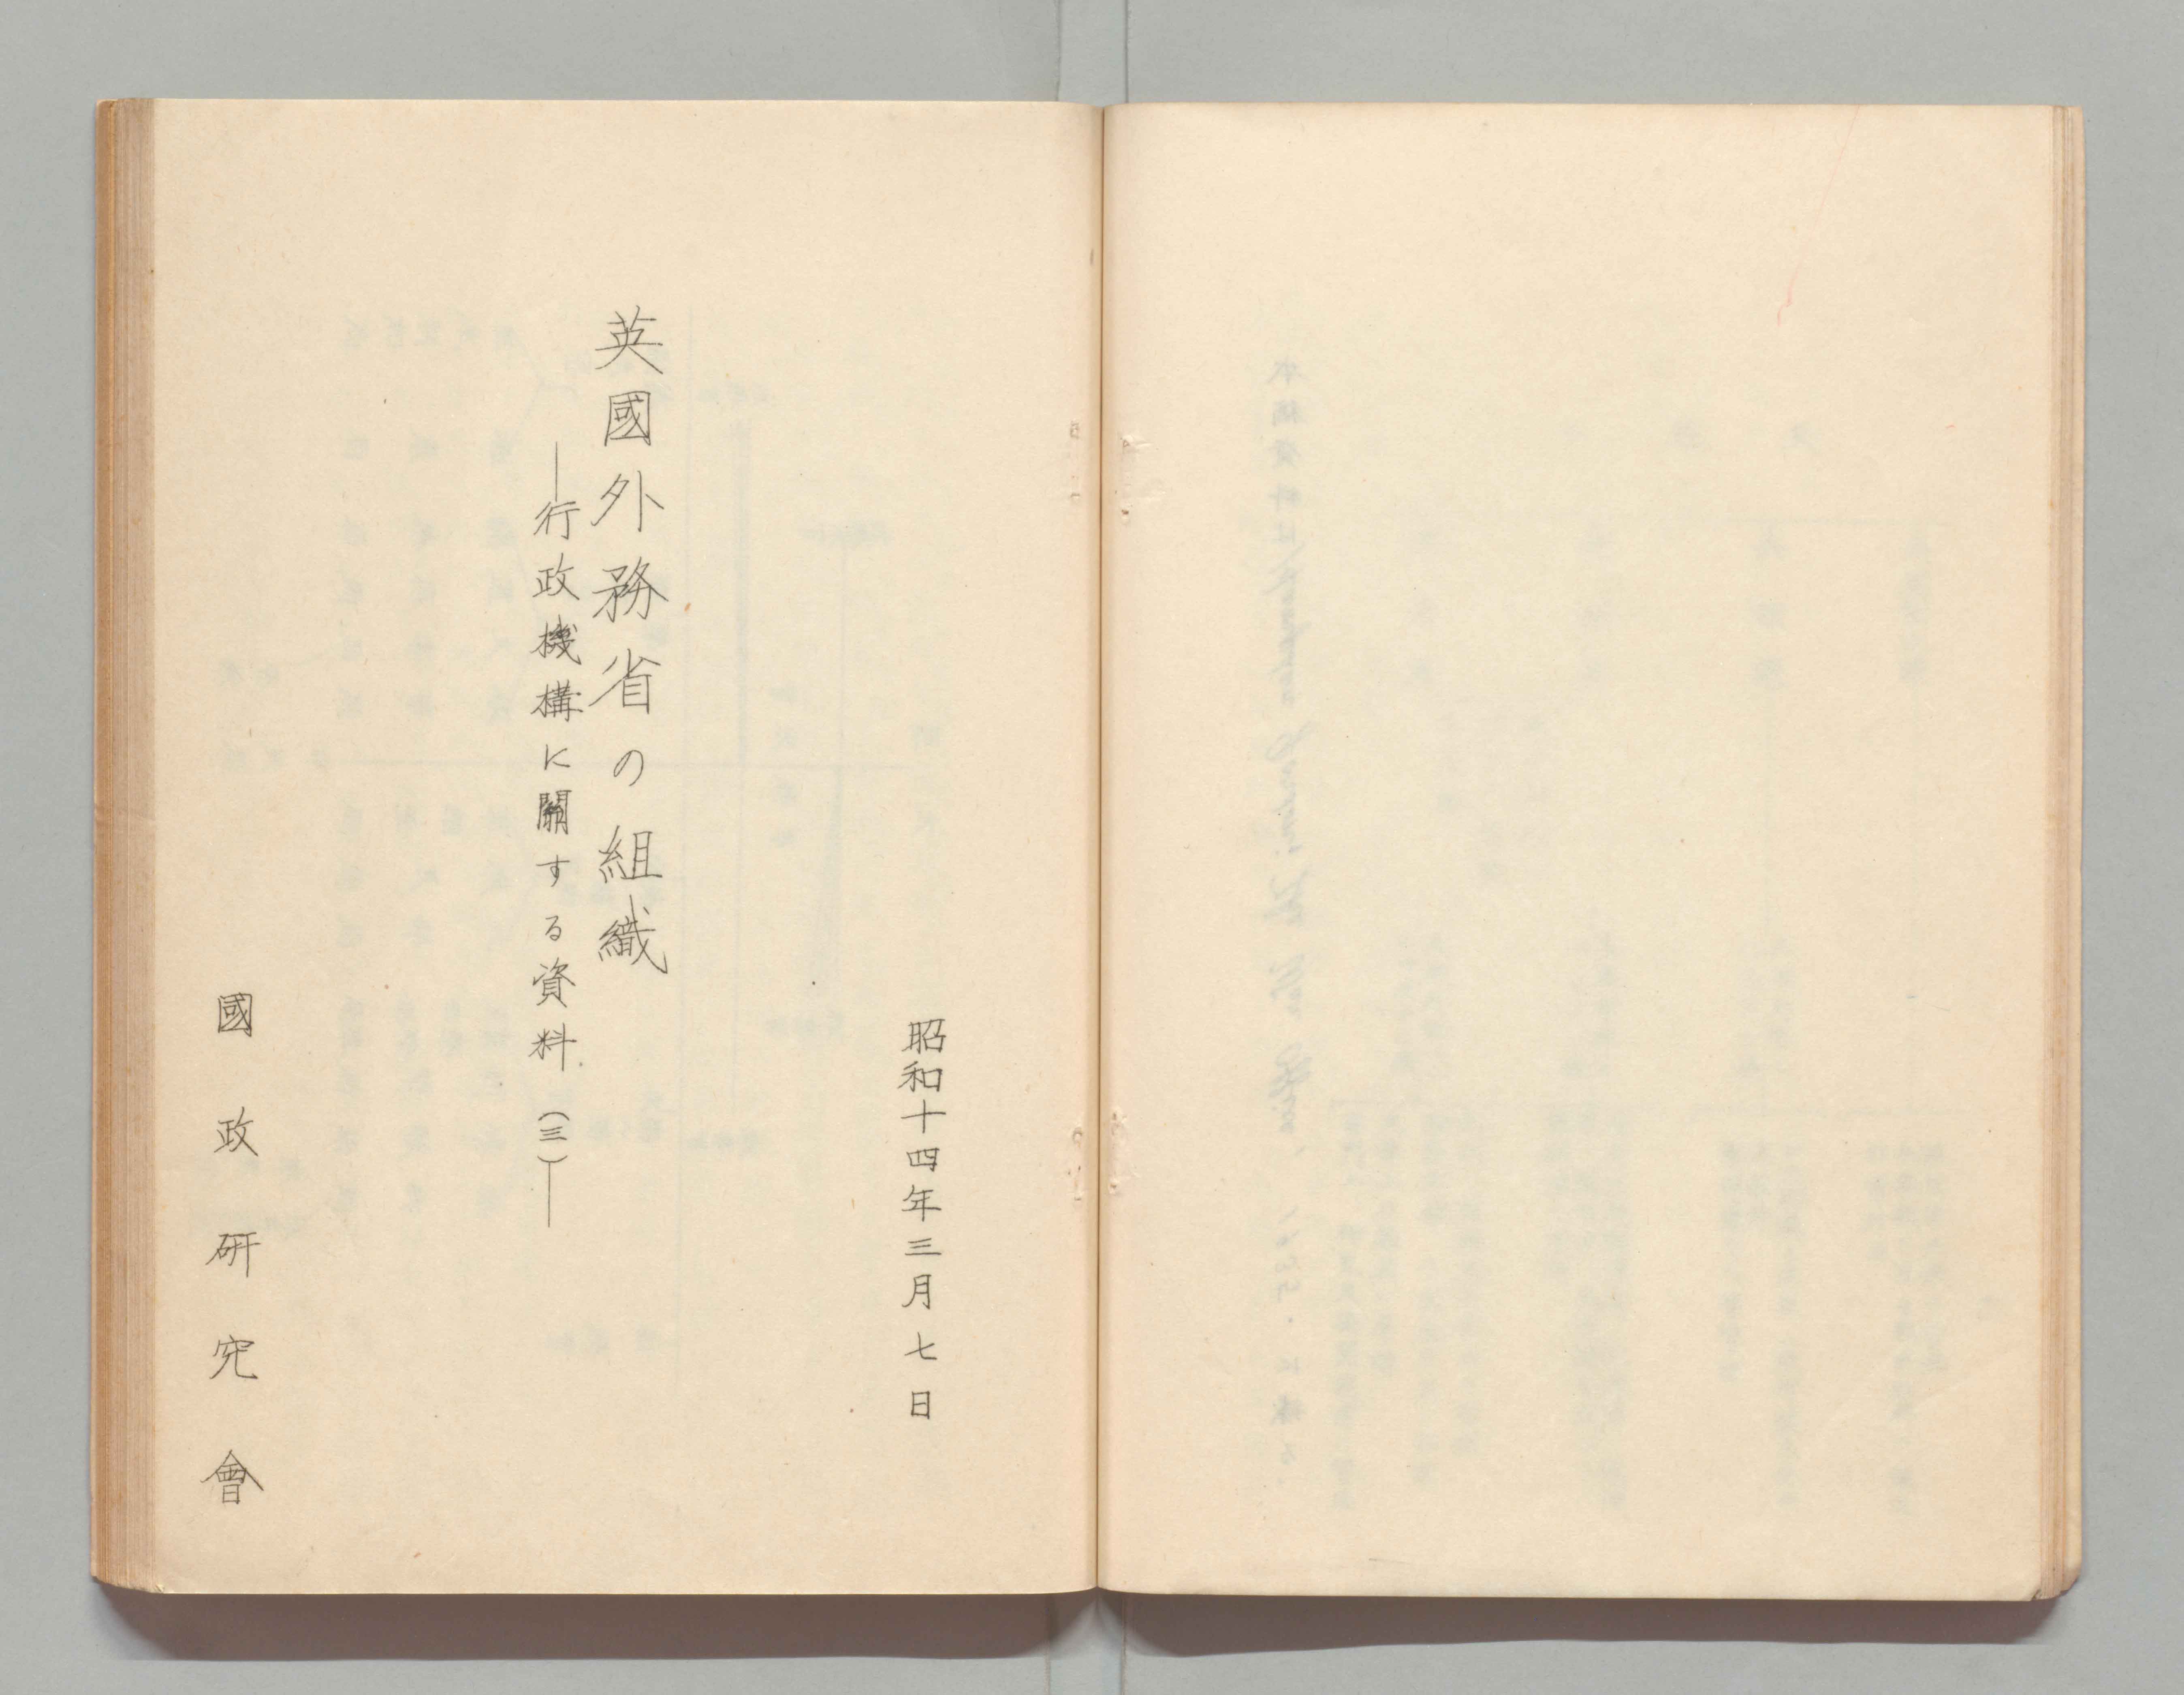 昭和十四年三月七日
英國外務省の組織
―行政機構に關する資料(三)―
國政研究會